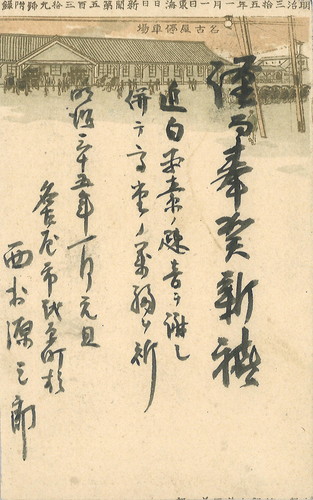 明治三拾五年一月一日東海日日新聞第五百三拾九號附録
名古屋停車場
謹而奉賀新禧
近白平素ノ疎音ヲ謝し
併テ高堂ノ萬福ヲ祈
明治三十五年一月元旦
名古屋市
西
源三郎